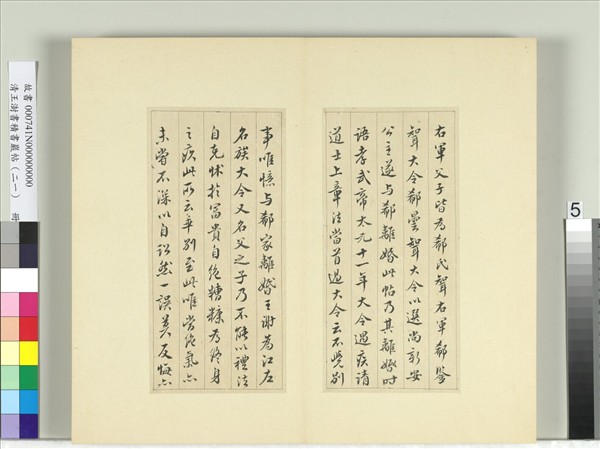 右軍父子皆為郗氏聟右軍郗鑒
聟大令郗曇聟大令以選尚新安
公主遂与郗離婚此帖乃其離婚時
語孝武帝太元十一年大令遇疾請
道士上章法當首過大令云不覺別
事唯憶与郗家離婚王謝為江左
名族大令又名父之子乃不能以禮法
自克怵於富貴自絕糟糠為終身
之疚此所云乖別至此唯當絕氣亦
未嘗不深以自訟然一誤莫反悔亦
故書 000741N000000000
清王澍書積書巖帖(二一) 冊
5